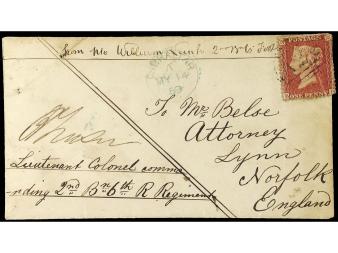 from No William 2nd Bn 6th Foot
GIBRALTAR
MY 14
POSTAGE
ONE PENNY
To Mr. Belse
Attorney
Lynn
Norfolk
England
Lieutenant Colonel comma
-nding 2nd Bn 6th R Regiment